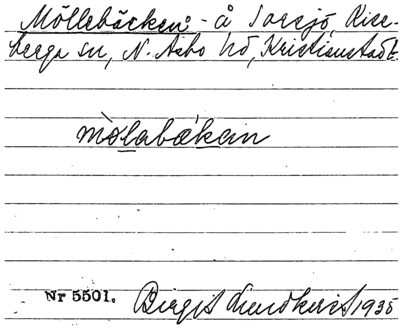 Möllebäcken - å Torsjö, Rise-
berga sn, N. Asbo hd, Kristianstads l.
mòlabækein
Nr 5501. Birgit Lundkvist 1935